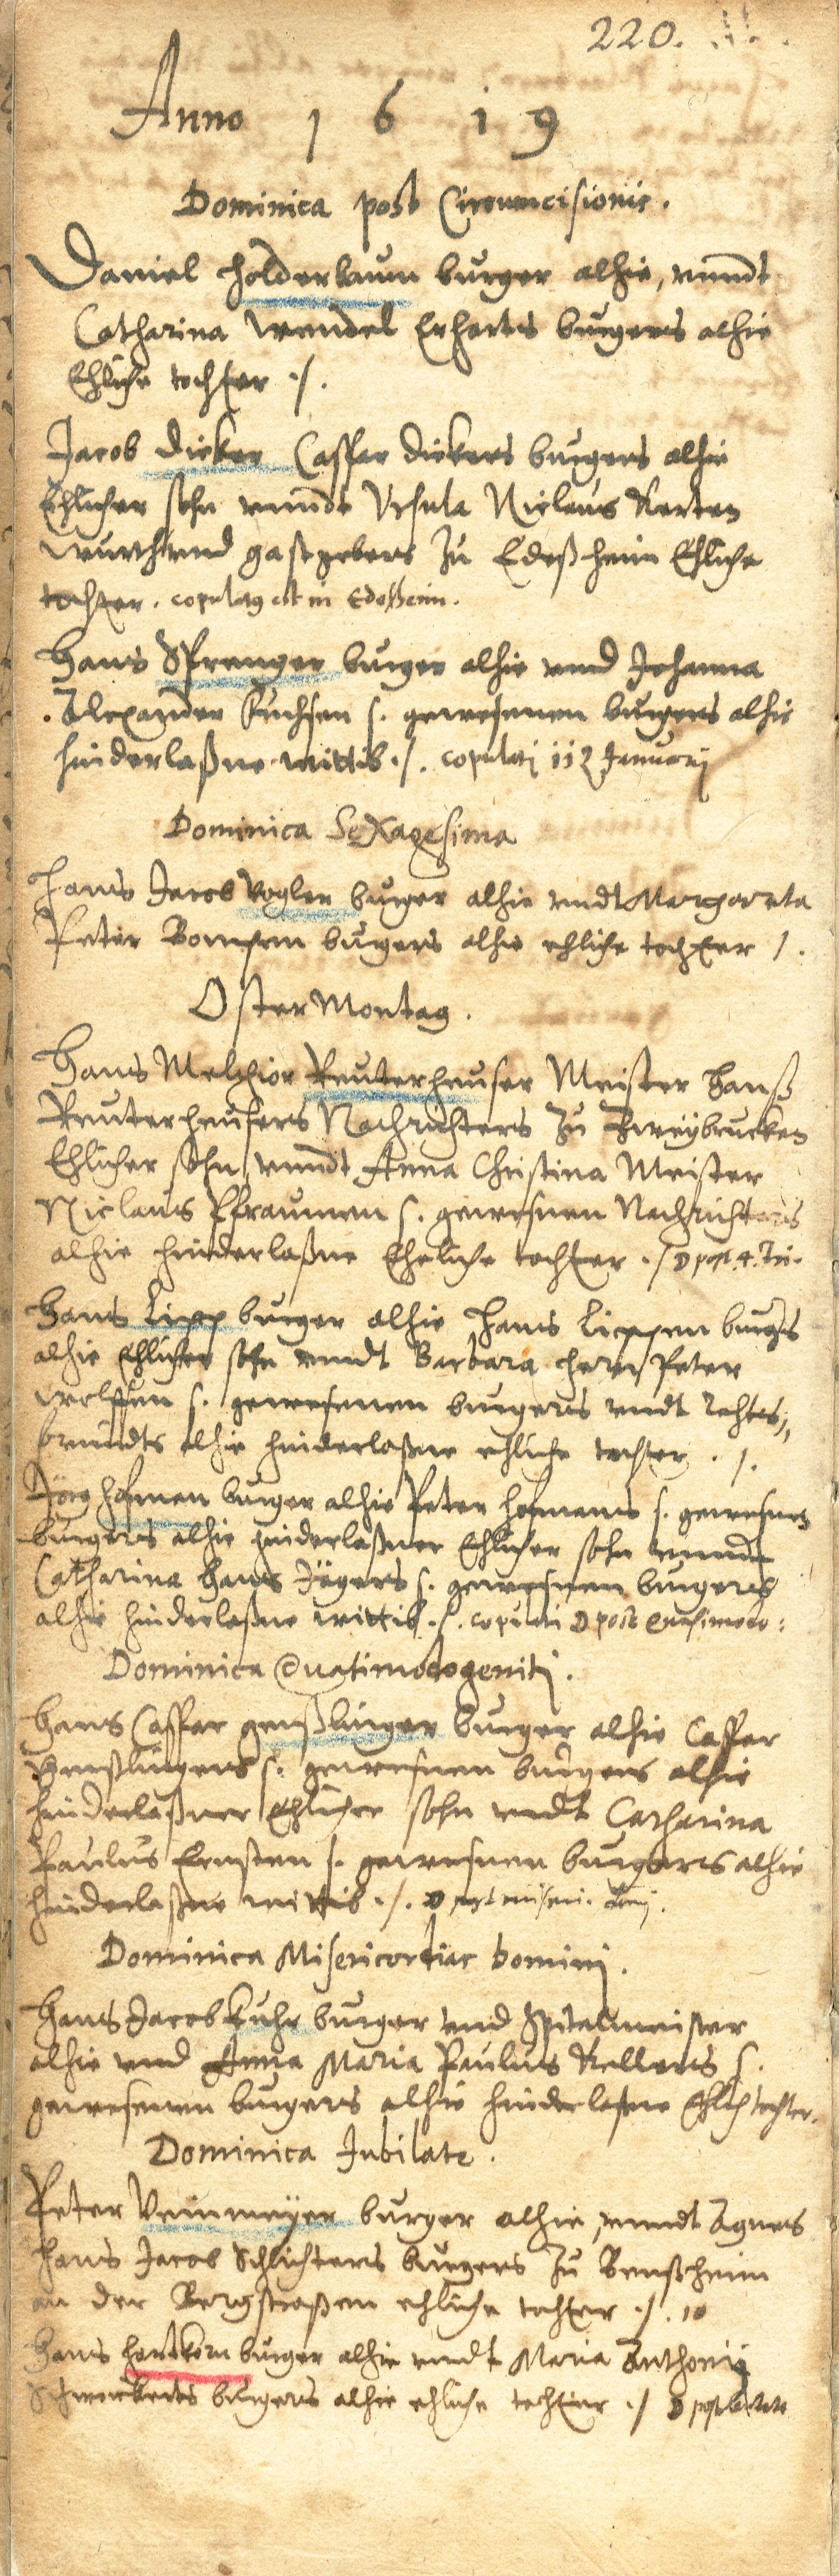 220.
Anno 1619
Dominica post Circumcisionis.
Daniel Holderbaum burger alhie, vnndt
Catharina Wendel Erharts burgers alhie
Ehliche tochter ./.
Jacob Dieker Caspar Diekers burgers alhie
Ehlicher sohn vnndt Vrsula Niclaus
Würth vnd gastgebers zu Edeßheim Ehliche
tochter. copulatus est in Edeßheim.
Hans Sprenger burger alhie vnnd Johanna
Alexander Fuchsen s. gewesenen burgers alhie
hinderlaßne wittib ./. copulati Januarij
Dominica Sexagesima
Hans Jacob Vogler burger alhie vndt Margareta
Peter burgers alhie ehliche tochter /.
Oster Montag.
Hans Melchior Reuterheuser Meister Hanß
Reuterheusers Nachrichters zu Zweybrucken
Ehlicher sohn, vnndt Anna Christina Meister
Niclaus Pfraumen s. gewesnen Nachrichters
alhie hinderlaßne Eheliche tochter ./ D post. 4. Tri.
Hans Lipp burger alhie Hans Lippen burgers
alhie Ehlicher sohn vnndt Barbara Herrn Peter
s. gewesenen burgers vndt Rahts,,
freundts alhie hinderlaßne ehliche tochter ./.
Jörg Hofman burger alhie Peter Hofmans s. gewesnen
burgers alhie hinderlaßner Ehlicher sohn vnnd
Catharina Hans Jägers s. gewesnen burgers
alhie hinderlaßne wittib ./. copulati D post Quasimodo:
Dominica Quasimodogeniti.
Hans Caspar Henßlinger burger alhie Caspar
Henßlingers s. gewesnen burgers alhie
hinderlaßner Ehlicher sohn vndt Catharina
Paulus Ernsten s. gewesnen burgers alhie
hinderlaßne wittib ./. D post miseri. dnj.
Dominica Misericordiae domini.
Hans Jacob Kuhr burger vnd Spitalmeister
alhie vnd Anna Maria Paulus Kellers s.
gewesenen burgers alhie hinderlaßne Ehlich tochter.
Dominica Jubilate.
Peter Veinmeyer burger alhie, vnndt Agnes
Hans Jacob Schlichters burgers zu Benßheim
an der Bergstraßen ehliche tochter ./.
Hans Hartkorn burger alhie vndt Maria Anthonij
Schweickerts burgers alhie ehliche tochter ./ D post